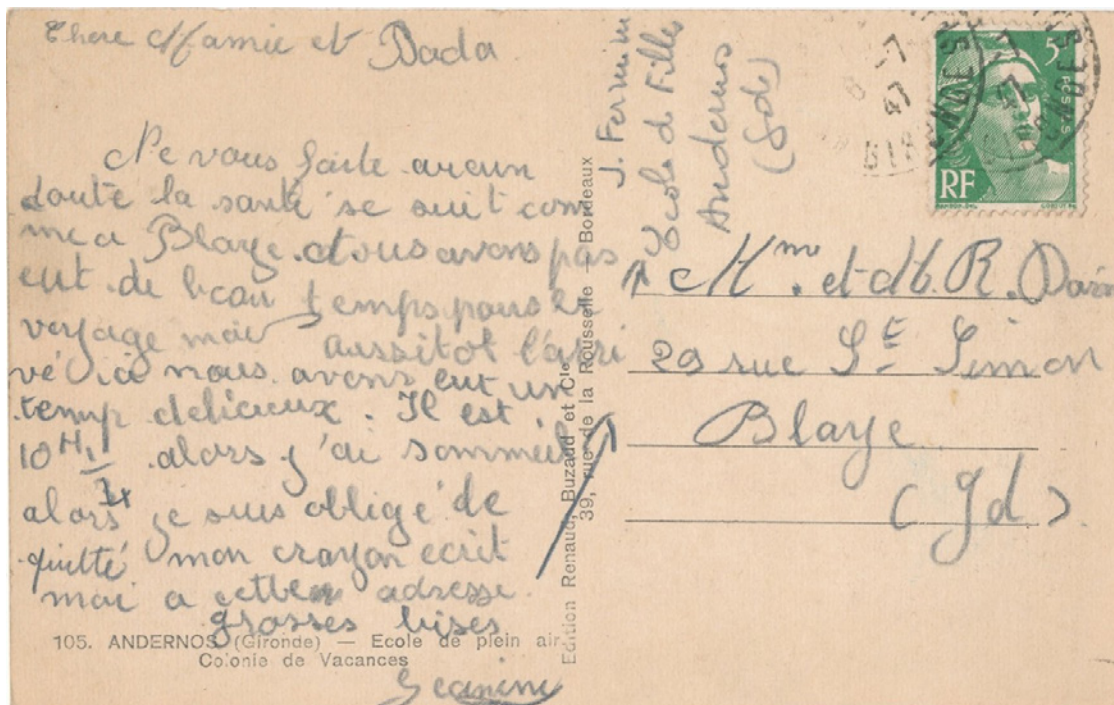 Chere Mamie et Dada
Ne vous faite aucun
doute la santé se suit com
me a Blaye. Nous avons pas
eut de beau temps pour le
voyage mai aussitot l'arri
vé ici nous avons eut un
temp delicieux. Il est
10H alors j'ai sommeil
alors je suis obligé de
quitté mon crayon ecrit
moi a cette adresse
grosses bises
Jeanine
105. ANDERNOS (Gironde) — Ecole de plein air
Colonie de Vacances
Edition Renaud, Buzaud et Cie
39, rue de la Rousselle — Bordeaux
J.
Ecole de Filles
Andernos
(Gde)
5F
POSTES
RF
-7
47
GIRONDE
Mme et M. R.
29 rue St Simon
Blaye
(Gd)